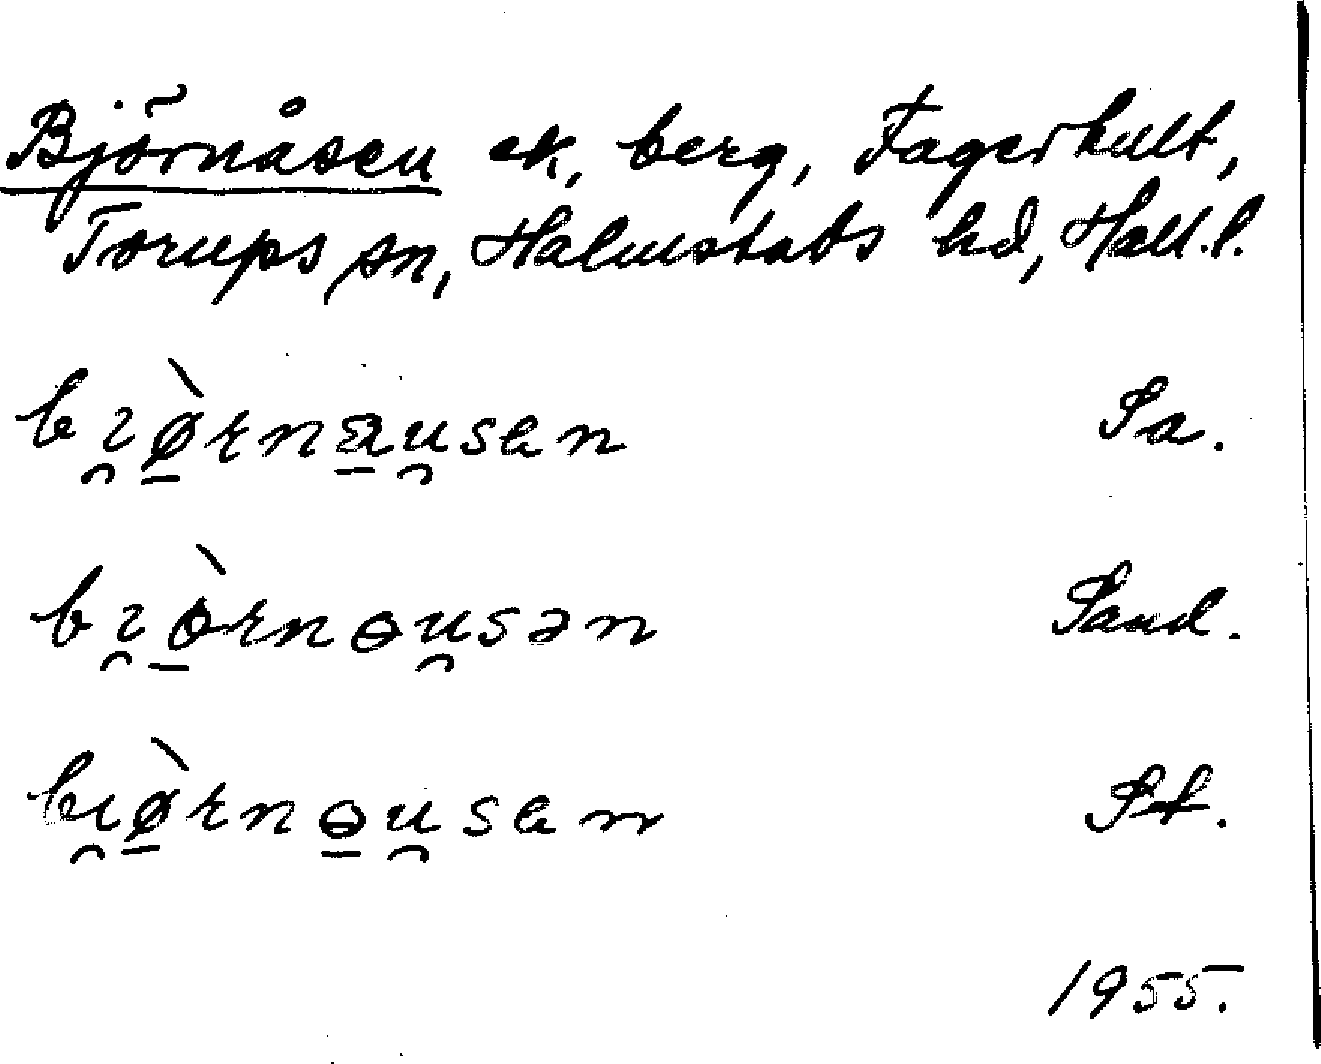 Björnåsen ek, berg, Fagerhult,
Torups sn, Halmstads hd, Hall. l.
bɿø̀rnausen Sa.
bɿòrnɵusən Sand.
bıø̀rnɵusen St.
1955.